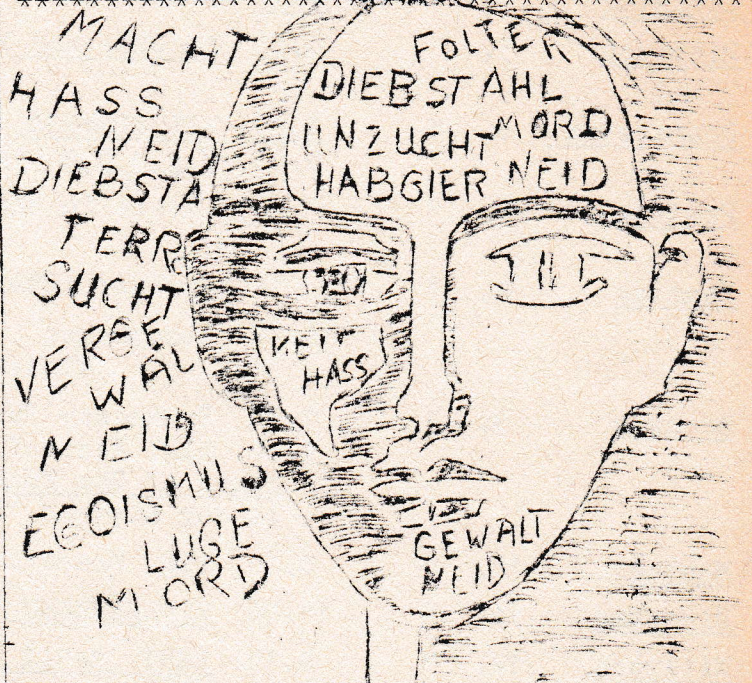 MACHT
HASS
NEID
DIEBSTA
TERR
SUCHT
VERGE
WAL
NEID
EGOISMUS
LUGE
MORD
FOLTER
DIEBSTAHL
UNZUCHT MORD
HABGIER NEID
HASS
GEWALT
NEID